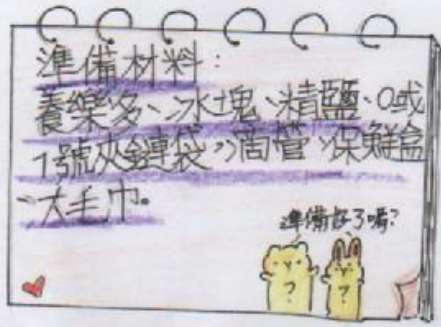 準備材料：
養樂多、冰塊、精鹽、0或
1號夾鏈袋，滴管、保鮮盒
、大毛巾。
準備好了嗎？
？
？